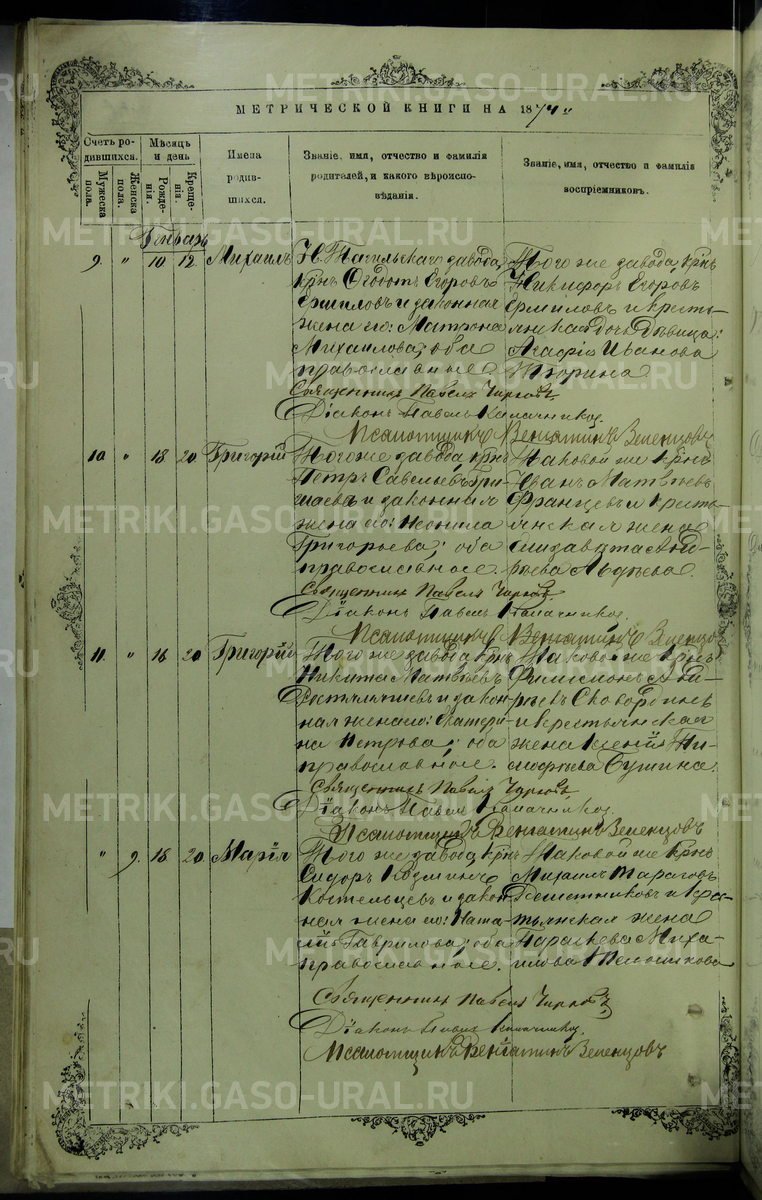 МЕТРИЧЕСКОЙ КНИГИ НА 1874 г.
Счетъ родившихся.
Мужеска пола.
Женска пола.
Мѣсяцъ и день
Рожденія.
Крещенія.
Имена родившихся.
Званіе, имя, отчество и фамилія родителей, и какого вѣроисповѣданія.
Званіе, имя, отчество и фамилія воспріемниковъ.
Генварь
9. " 10 12 Михаилъ
Н. Тагильскаго завода,
крнъ Ѳедотъ Егоровъ
Ермиловъ и законная
жена его: Матрона
Михаилова; оба
православные.
Того же завода, крнъ
Никифоръ Егоровъ
Ермиловъ и кресть-
янская дочь дѣвица:
Агафія Иванова
Священникъ Павелъ
Діаконъ Павелъ Калачниковъ
Псаломщикъ Веніаминъ Зеленцовъ
10 " 18 20 Григорій
Того же завода, крнъ
Петръ Савельевъ
и законная
жена его: Неонила
Григорьева; оба
православные.
Таковой же крнъ
Иванъ Матвѣевъ
и кресть-
янская жена
Елизавета Анд-
реева Авдѣева.
Священникъ Павелъ
Діаконъ Павелъ Калачниковъ
Псаломщикъ Веніаминъ Зеленцовъ
11. " 16 20 Григорій
Того же завода, крнъ
Никита Матвѣевъ
и закон-
ная жена его: Екатери-
на Петрова; оба
православные.
Таковой же крнъ
Филимонъ Анд-
реевъ
и крестьянская
жена Ксенія Ти-
мофеева
Священникъ Павелъ
Діаконъ Павелъ Калачниковъ
Псаломщикъ Веніаминъ Зеленцовъ
" 9. 18 20 Марія
Того же завода, крнъ
Сидоръ Козминъ
Костельцевъ и закон-
ная жена его: Ната-
лія Гаврилова; оба
православные.
Таковой же крнъ
Михаилъ Тарасовъ
и кре-
стьянская жена
Параскева Миха-
илова
Священникъ Павелъ
Діаконъ Павелъ Калачниковъ
Псаломщикъ Веніаминъ Зеленцовъ
METRIKI.GASO-URAL.RU